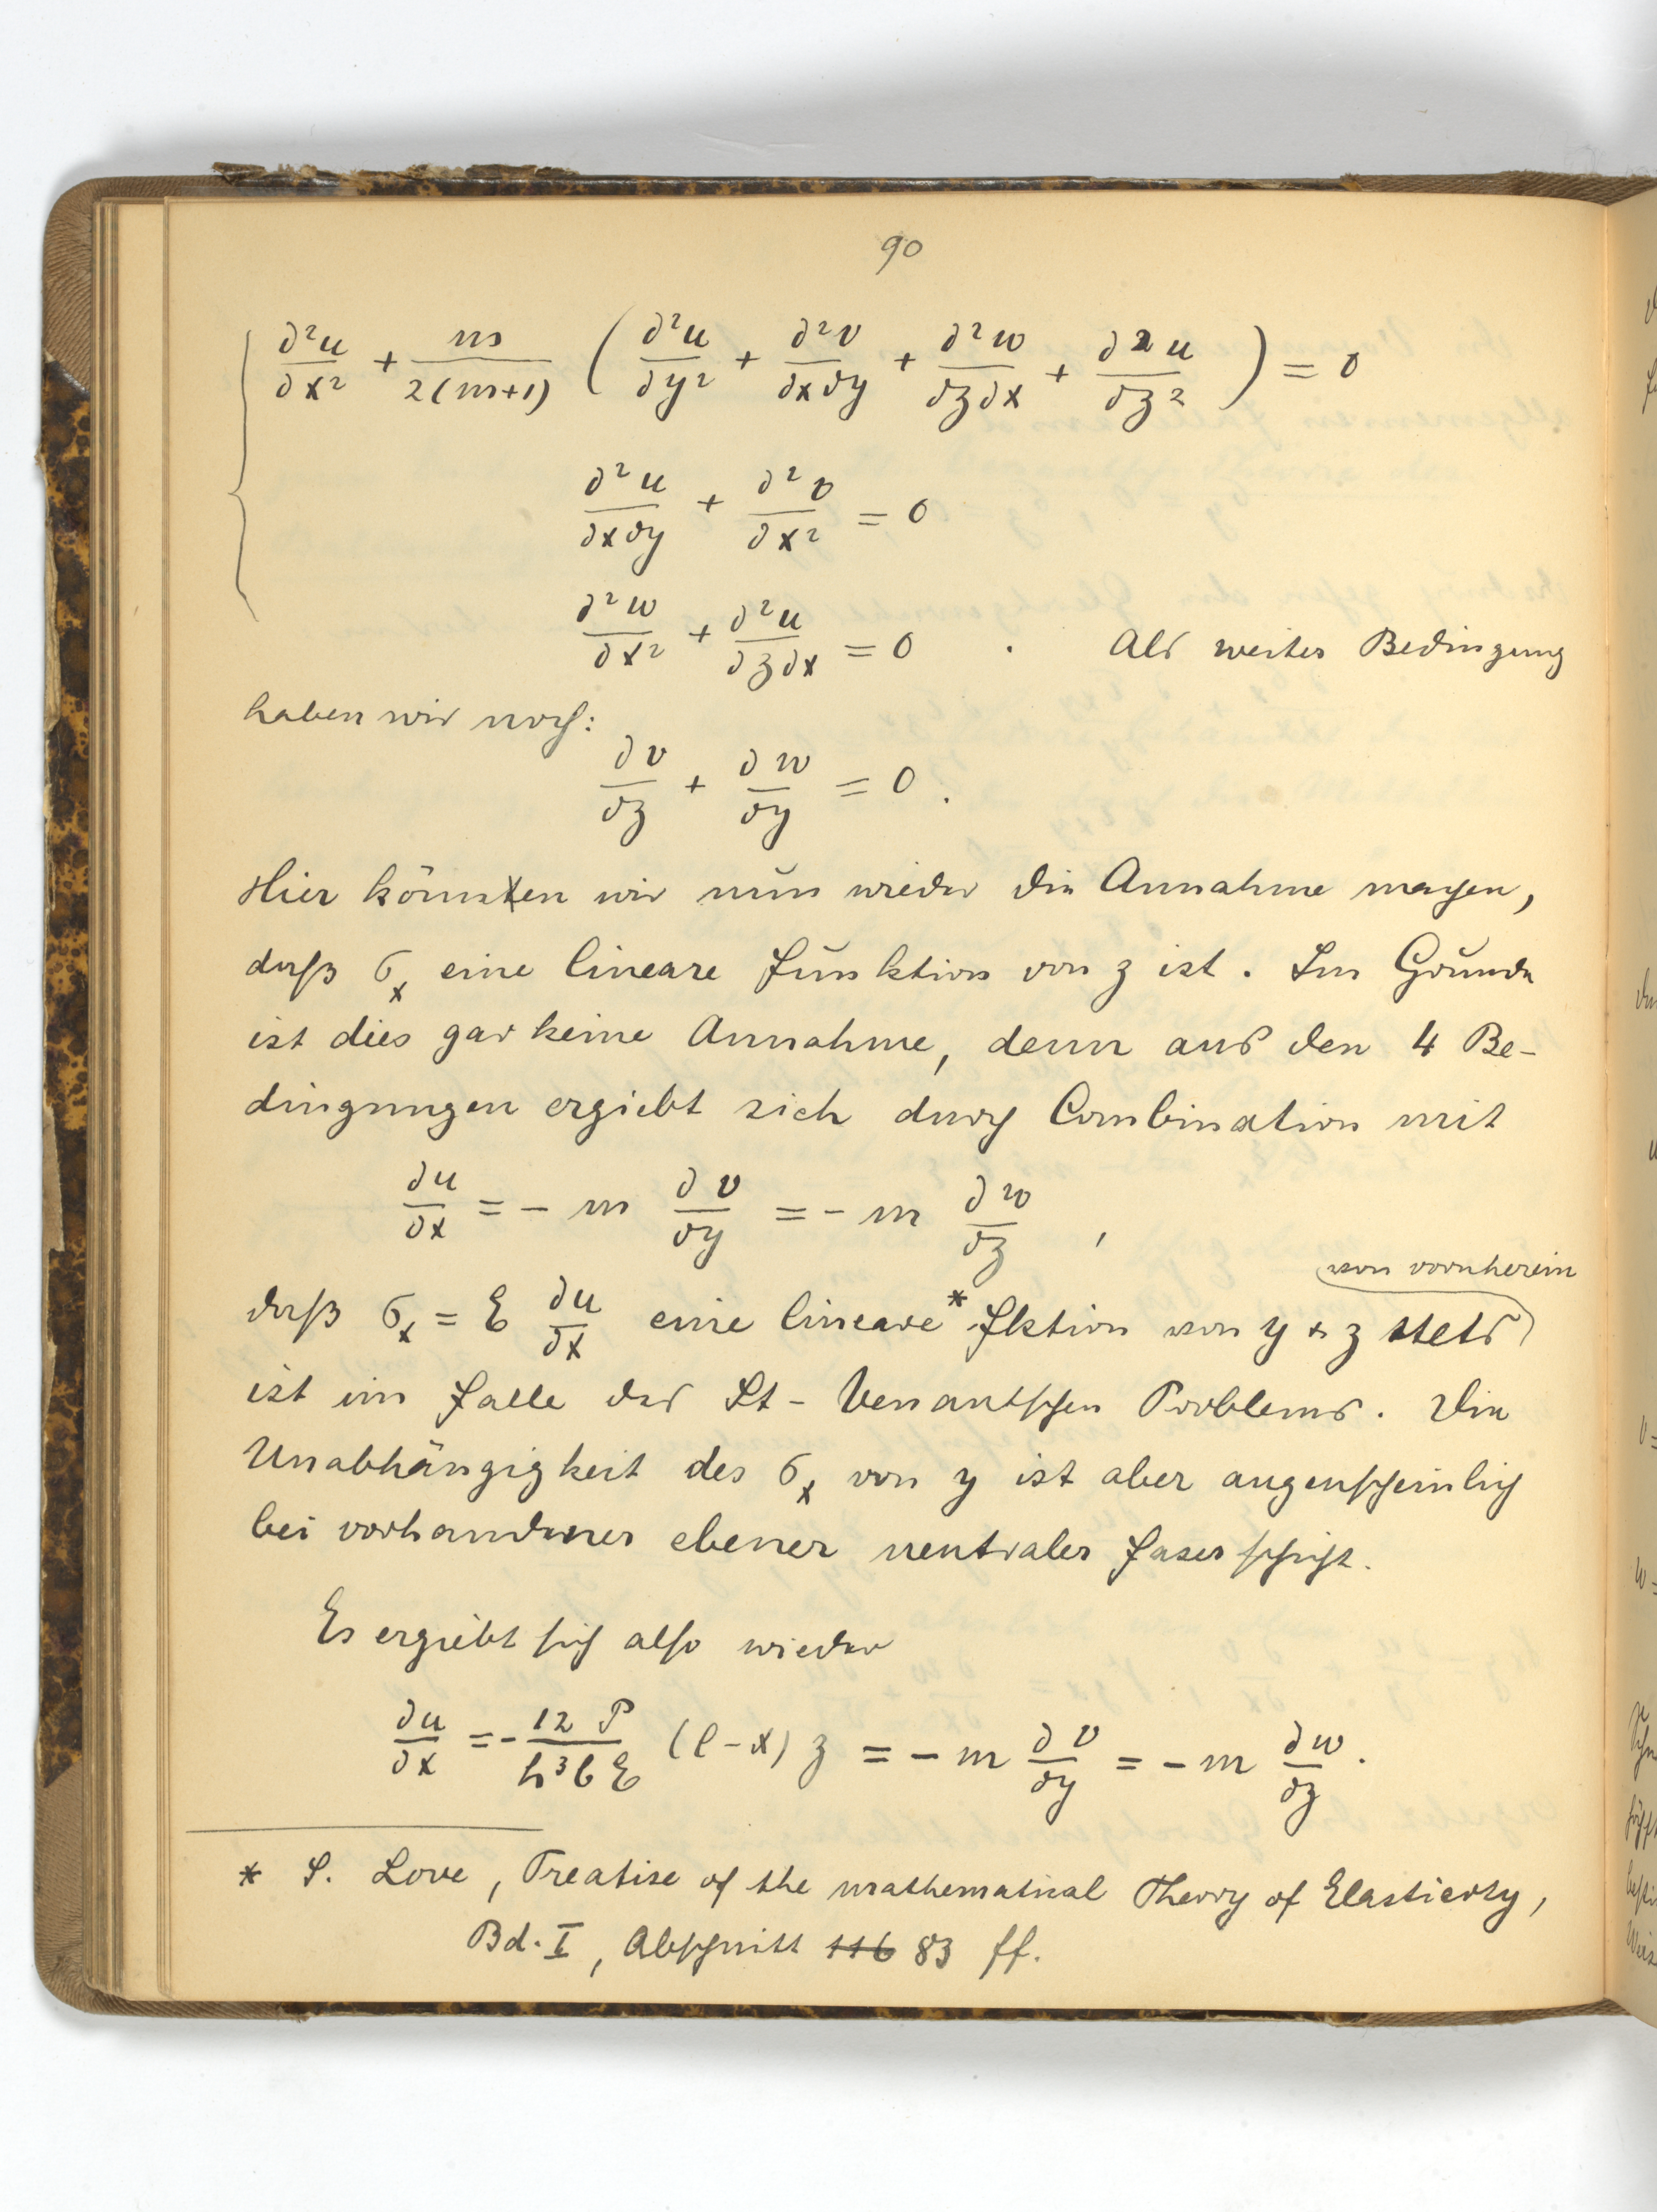 90
∂²u/∂x² + m/2(m+1) (∂²u/∂y² + ∂²v/∂x∂y + ∂²w/∂z∂x + ∂²u/∂z²) = 0
∂²u/∂x∂y + ∂²v/∂x² = 0
∂²w/∂x² + ∂²u/∂z∂x = 0 . Als weiter Bedingung
haben wir noch:
∂v/∂z + ∂w/∂y = 0.
Hier können wir nun wieder die Annahme machen,
daß σx eine lineare Funktion von z ist. Im Grunde
ist dies gar keine Annahme, denn aus den 4 Be-
dingungen ergiebt sich durch Combination mit
∂u/∂x = - m ∂v/∂y = - m ∂w/∂z ,
von vornherein
daß σx = E ∂u/∂x eine lineare* Fktion von y + z stets
ist im Falle des St-Venantschen Problems. Die
Unabhängigkeit des σx von y ist aber augenscheinlich
bei vorhandener ebener neutraler Faserschicht.
Es ergiebt sich also wieder
∂u/∂x = - 12 P/h³bE (l-x) z = - m ∂v/∂y = - m ∂w/∂z.
* S. Love, Treatise of the mathematical Theory of Elasticity,
Bd. I, Abschnitt 116 83 ff.